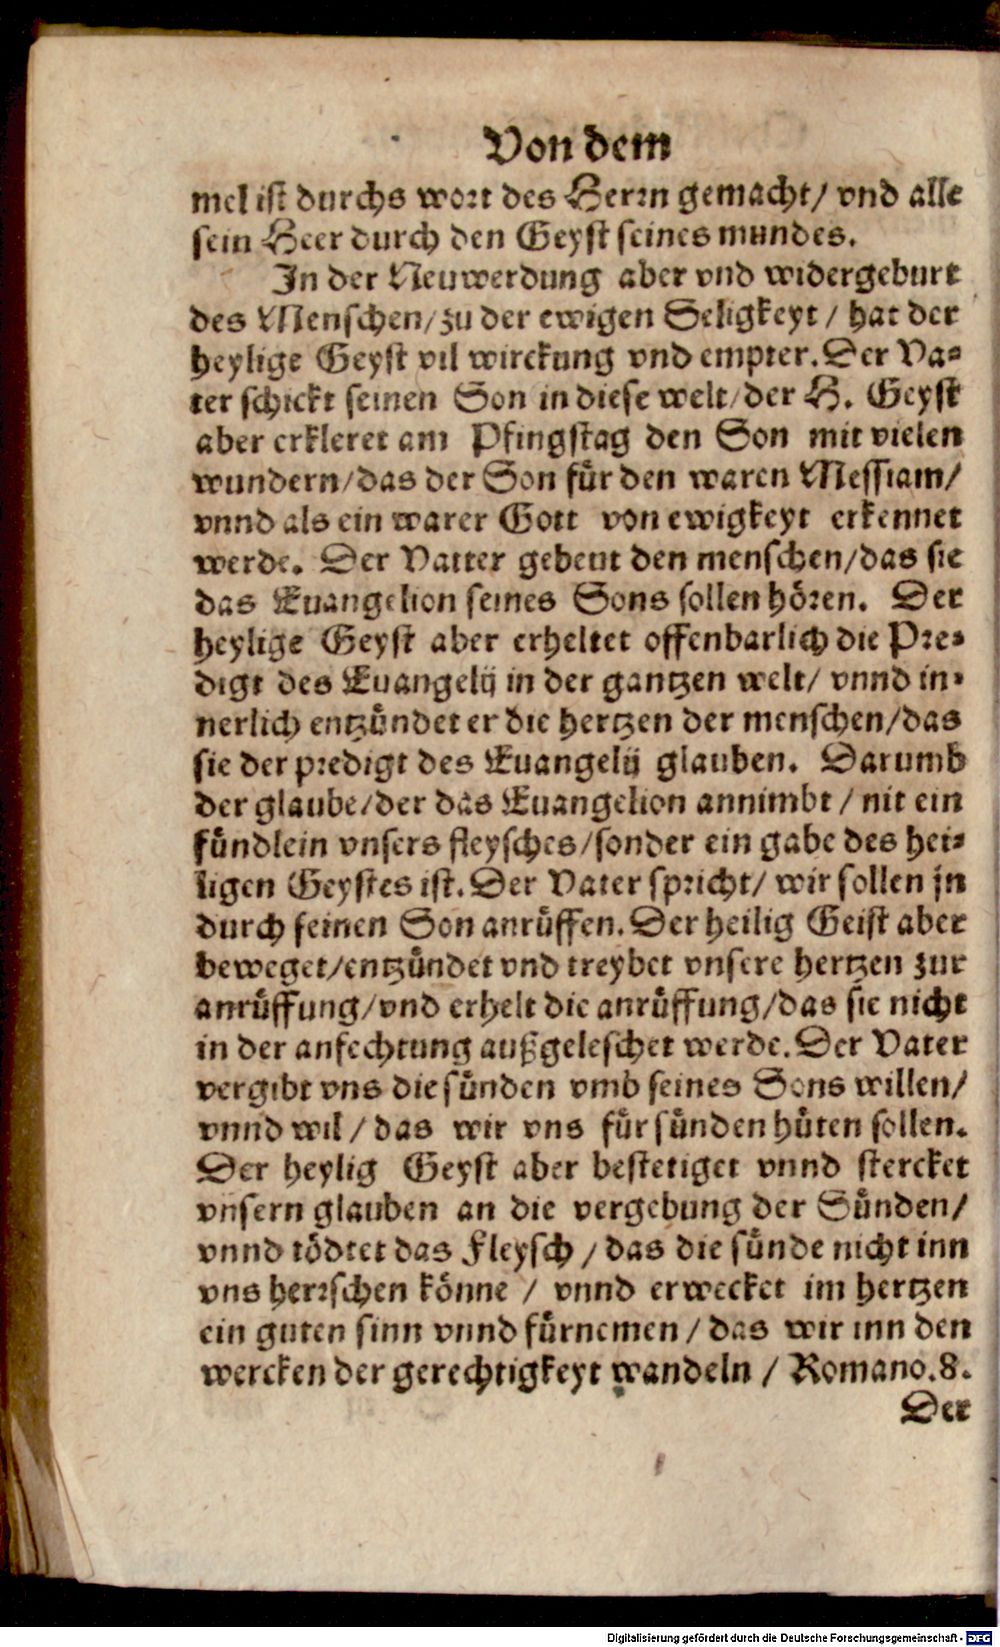 Von dem
mel ist durchs wort des Herrn gemacht/ vnd alle
sein Heer durch den Geyst seines mundes.
In der Neuwerdung aber vnd widergeburt
des Menschen/zu der ewigen Seligkeyt / hat der
heylige Geyst vil wirckung vnd empter. Der Va-
ter schickt seinen Son in diese welt/der H. Geyst
aber erkleret am Pfingstag den Son mit vielen
wundern/das der Son fuͤr den waren Messiam/
vnnd als ein warer Gott von ewigkeyt erkennet
werde. Der Vatter gebeut den menschen/das sie
das Euangelion seines Sons sollen hoͤren. Der
heylige Geyst aber erheltet offenbarlich die Pre-
digt des Euangelij in der gantzen welt/ vnnd in-
nerlich entzuͤndet er die hertzen der menschen/das
sie der predigt des Euangelij glauben. Darumb
der glaube/der das Euangelion annimbt / nit ein
fuͤndlein vnsers fleysches/sonder ein gabe des hei-
ligen Geystes ist. Der Vater spricht/ wir sollen jn
durch seinen Son anruͤffen. Der heilig Geist aber
beweget/entzuͤndet vnd treybet vnsere hertzen zur
anruͤffung/vnd erhelt die anruͤffung/das sie nicht
in der anfechtung außgeleschet werde. Der Vater
vergibt vns die suͤnden vmb seines Sons willen/
vnnd wil / das wir vns fuͤr suͤnden huͤten sollen.
Der heylig Geyst aber bestetiget vnnd stercket
vnsern glauben an die vergebung der Suͤnden/
vnnd toͤdtet das Fleysch / das die suͤnde nicht inn
vns herrschen koͤnne / vnnd erwecket im hertzen
ein guten sinn vnnd fuͤrnemen / das wir inn den
wercken der gerechtigkeyt wandeln / Romano. 8.
Der
Digitalisierung gefördert durch die Deutsche Forschungsgemeinschaft - DFG